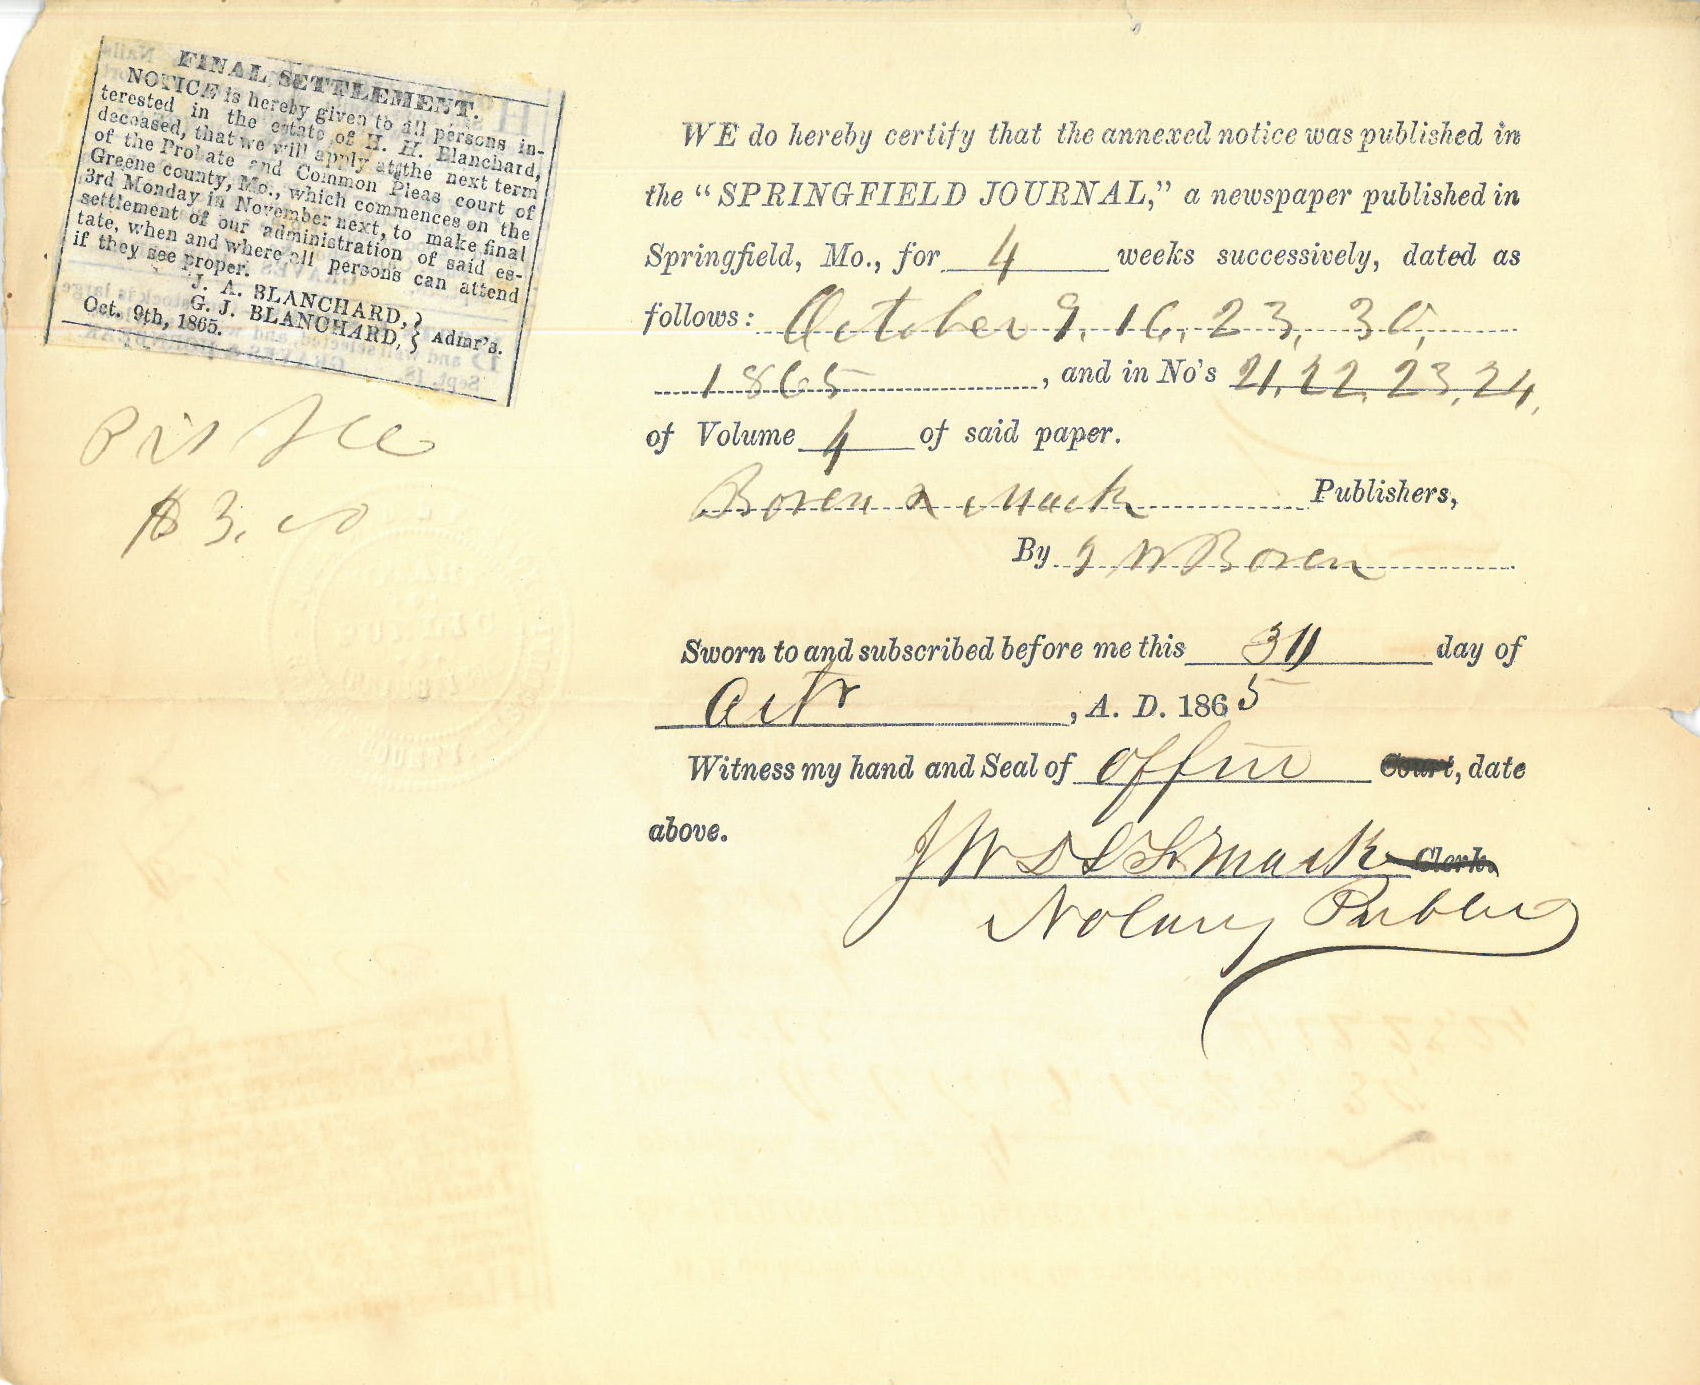 FINAL SETTLEMENT.
NOTICE is hereby given to all persons in-
terested in the estate of H. H. Blanchard,
deceased, that we will apply at the next term
of the Probate and Common Pleas court of
Greene county, Mo., which commences on the
3rd Monday in November next, to make final
settlement of our administration of said es-
tate, when and where all persons can attend
if they see proper.
J. A. BLANCHARD,
G. J. BLANCHARD, } Admr's.
Oct. 9th, 1865.
Prs Fee
$3.00
WE do hereby certify that the annexed notice was published in
the “SPRINGFIELD JOURNAL,” a newspaper published in
Springfield, Mo., for 4 weeks successively, dated as
follows: October 9, 16, 23, 30,
1865, and in No's 21, 22, 23, 24,
of Volume 4 of said paper.
Boren & Mack Publishers,
By J W Boren
Sworn to and subscribed before me this 30 day of
Octr, A. D. 1865
Witness my hand and Seal of office Court, date
above.
J W D L F Mack Clerk.
Notary Public